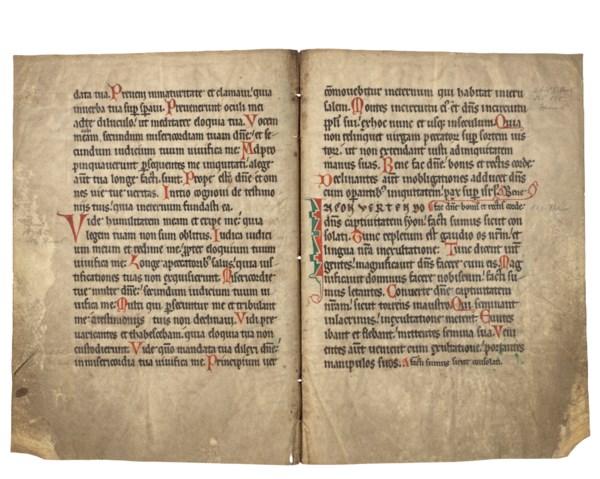 data tua. Preueni inmaturitate et clamaui: quia
inuerba tua sup spaui. Preuenerunt oculi mei
adte diliculo: ut meditarer eloquia tua. Vocem
meam, secundum misericordiam tuam dñe: et se
cundum iudicium tuum uiuifica me. Adpro
pinquauerunt psequentes me iniquitati: a lege
aut tua longe facti sunt. Prope es tu dñe: et om
nes uie tue ueritas. Initio cognoui de testimo
niis tuis: quia ineternum fundasti ea.
Vide humilitatem meam et eripe me: quia
legem tuam non sum oblitus. Iudica iudici
um meum et redime me: ppter eloquium tuum
uiuifica me. Longe apeccatorib; salus: quia ius
tificationes tuas non exquisierunt. Misericordie
tue multe dñe: secundum iudicium tuum ui
uifica me. Multi qui psecuntur me et tribulant
me: atestimoniis tuis non declinaui. Vidi pre
uaricantes et thabescebam: quia eloquia tua non
custodierunt. Vide quō mandata tua dilexi dñe:
in misericordia tua uiuifica me. Principium uer
cōmouebitur ineternum qui habitat inieru
salem. Montes incircuitu ei: et dñs incircuitu
ppli sui: exhoc nunc et usq; inseculum. Quia
non relinquet uirgam peccator sup sortem ius
tor: ut non extendant iusti adiniquitatem
manus suas. Bene fac dñe: bonis et rectis corde.
Declinantes aut inobligationes adducet dñs
cum opantib; iniquitatem: pax sup isrl. Bene
IN CONVERTENDO fac dñe bonis et rectis corde.
dñs captiuitatem syon: facti sumus sicut con
solati. Tunc repletum est gaudio os nrm: et
lingua nra inexultatione. Tunc dicent int
gentes: magnificauit dñs facere cum eis. Mag
nificauit dominus facere nobiscum: facti su
mus letantes. Conuerte dñe captiuitatem
nram: sicut torrens inaustro. Qui seminant
inlacrimis: inexultatione metent. Euntes
ibant et flebant: mittentes semina sua. Veni
entes aut uenient cum exultatione: portantes
manipulos suos. A facti sumus sicut consolati.